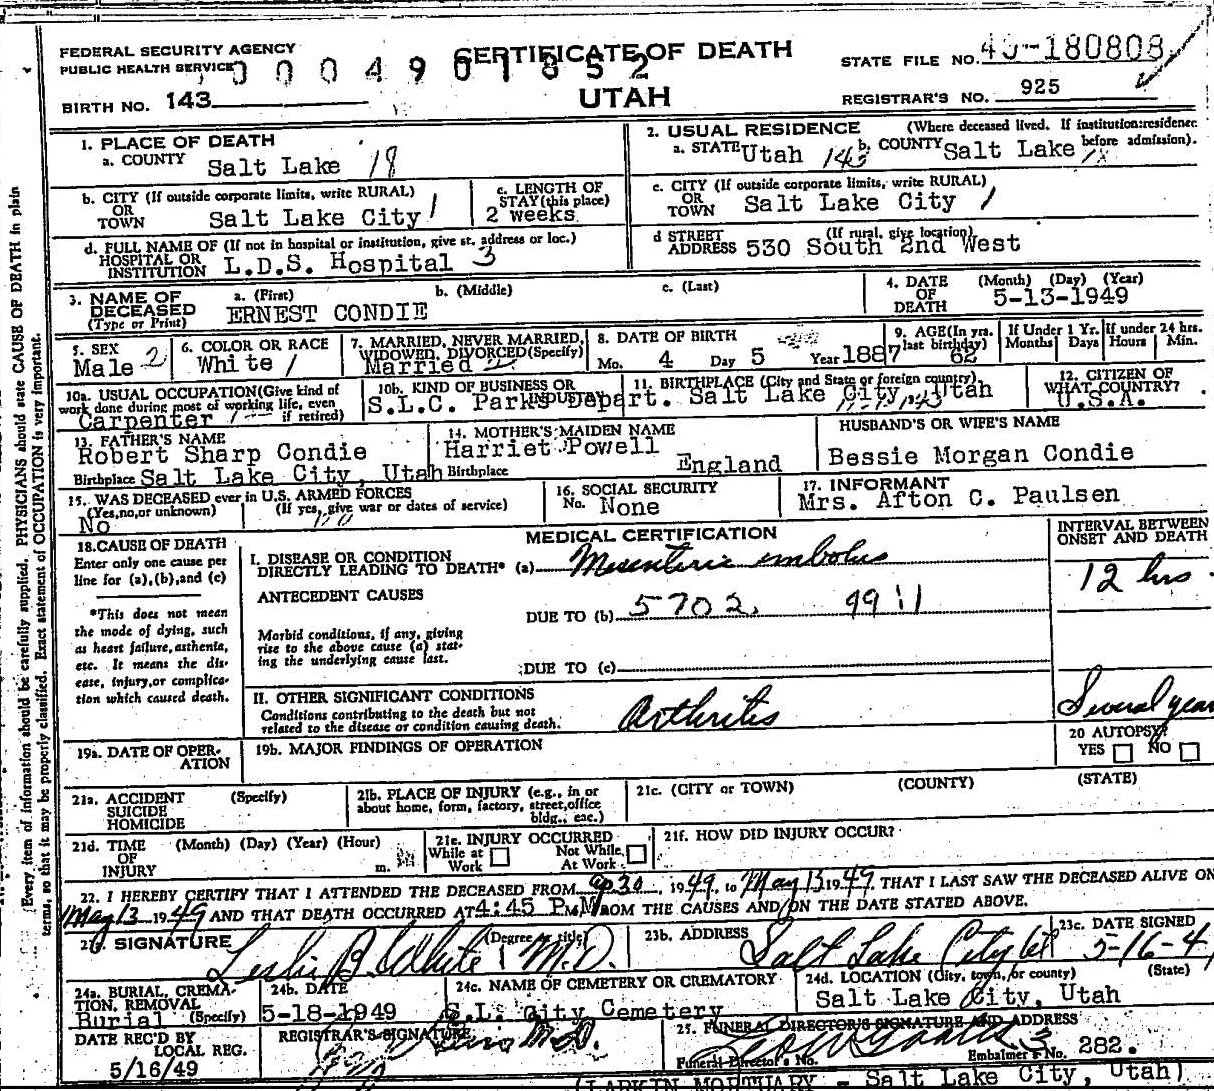 FEDERAL SECURITY AGENCY
PUBLIC HEALTH SERVICE
0004901852
CERTIFICATE OF DEATH
UTAH
STATE FILE NO. 49-180808
BIRTH NO. 143
REGISTRAR'S NO. 925
1. PLACE OF DEATH
a. COUNTY Salt Lake 18
2. USUAL RESIDENCE (Where deceased lived. If institution:residence before admission).
a. STATE Utah 143 b. COUNTY Salt Lake 18
b. CITY (If outside corporate limits, write RURAL)
OR
TOWN Salt Lake City 1
c. LENGTH OF
STAY(this place)
2 weeks
c. CITY (If outside corporate limits, write RURAL)
OR
TOWN Salt Lake City 1
d. FULL NAME OF (If not in hospital or institution, give st. address or loc.)
HOSPITAL OR
INSTITUTION L.D.S. Hospital 3
d STREET (If rural, give location)
ADDRESS 530 South 2nd West
3. NAME OF
DECEASED
(Type or Print)
a. (First) b. (Middle) c. (Last)
ERNEST CONDIE
4. DATE (Month) (Day) (Year)
OF
DEATH 5-13-1949
5. SEX
Male 2
6. COLOR OR RACE
White 1
7. MARRIED, NEVER MARRIED,
WIDOWED, DIVORCED(Specify)
Married
8. DATE OF BIRTH
Mo. 4 Day 5 Year 1887
9. AGE(In yrs.
last birthday)
62
If Under 1 Yr.
Months Days
If under 24 hrs.
Hours Min.
10a. USUAL OCCUPATION(Give kind of
work done during most of working life, even
if retired)
Carpenter
10b. KIND OF BUSINESS OR
INDUSTRY
S.L.C. Parks Depart.
11. BIRTHPLACE (City and State or foreign country)
Salt Lake City, Utah
12. CITIZEN OF
WHAT COUNTRY?
U.S.A.
13. FATHER'S NAME
Robert Sharp Condie
Birthplace Salt Lake City, Utah
14. MOTHER'S MAIDEN NAME
Harriet Powell
Birthplace England
HUSBAND'S OR WIFE'S NAME
Bessie Morgan Condie
15. WAS DECEASED ever in U.S. ARMED FORCES
(Yes,no,or unknown) (If yes, give war or dates of service)
No
16. SOCIAL SECURITY
No. None
17. INFORMANT
Mrs. Afton C. Paulsen
18. CAUSE OF DEATH
Enter only one cause per
line for (a),(b),and (c)
*This does not mean
the mode of dying, such
as heart failure,asthenia,
etc. It means the dis-
ease, injury,or complica-
tion which caused death.
MEDICAL CERTIFICATION
INTERVAL BETWEEN
ONSET AND DEATH
I. DISEASE OR CONDITION
DIRECTLY LEADING TO DEATH* (a) Mesenteric embolus
12 hrs
ANTECEDENT CAUSES
DUE TO (b) 5702
Morbid conditions, if any, giving
rise to the above cause (a) stat-
ing the underlying cause last.
DUE TO (c)
II. OTHER SIGNIFICANT CONDITIONS
Conditions contributing to the death but not
related to the disease or condition causing death.
Arthritis
Several years
19a. DATE OF OPER-
ATION
19b. MAJOR FINDINGS OF OPERATION
20 AUTOPSY?
YES NO
21a. ACCIDENT (Specify)
SUICIDE
HOMICIDE
21b. PLACE OF INJURY (e.g., in or
about home, form, factory, street,office
bldg., eac.)
21c. (CITY or TOWN) (COUNTY) (STATE)
21d. TIME (Month) (Day) (Year) (Hour)
OF
INJURY m.
21e. INJURY OCCURRED
While at Work Not While At Work
21f. HOW DID INJURY OCCUR?
22. I HEREBY CERTIFY THAT I ATTENDED THE DECEASED FROM Ap 30, 1949, to May 13 1949. THAT I LAST SAW THE DECEASED ALIVE ON
May 13 1949 AND THAT DEATH OCCURRED AT 4:45 P.M. FROM THE CAUSES AND ON THE DATE STATED ABOVE.
SIGNATURE (Degree or title)
Leslie B. White M.D.
23b. ADDRESS
Salt Lake City Ut
23c. DATE SIGNED
5-16-4
24a. BURIAL, CREMA-
TION, REMOVAL
(Specify)
Burial
24b. DATE
5-18-1949
24c. NAME OF CEMETERY OR CREMATORY
S.L. City Cemetery
24d. LOCATION (City, town, or county) (State)
Salt Lake City, Utah
DATE REC'D BY
LOCAL REG.
5/16/49
REGISTRAR'S SIGNATURE
M.D.
25. FUNERAL DIRECTOR'S SIGNATURE AND ADDRESS
Funeral Director's No. Embalmer's No. 282.
(LARKIN MORTUARY - Salt Lake City, Utah)
(Every item of information should be carefully supplied. PHYSICIANS should state CAUSE OF DEATH in plain
terms, so that it may be properly classified. Exact statement of OCCUPATION is very important.